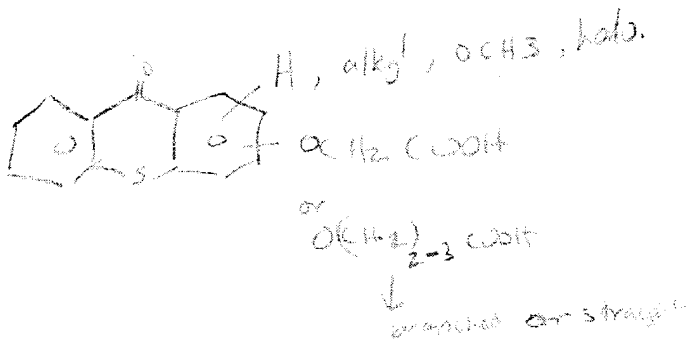 O
H, alkyl, OCH3, halo.
O O OCH2 COOH
S
or
O(CH2)2-3 COOH
↓
branched or straight